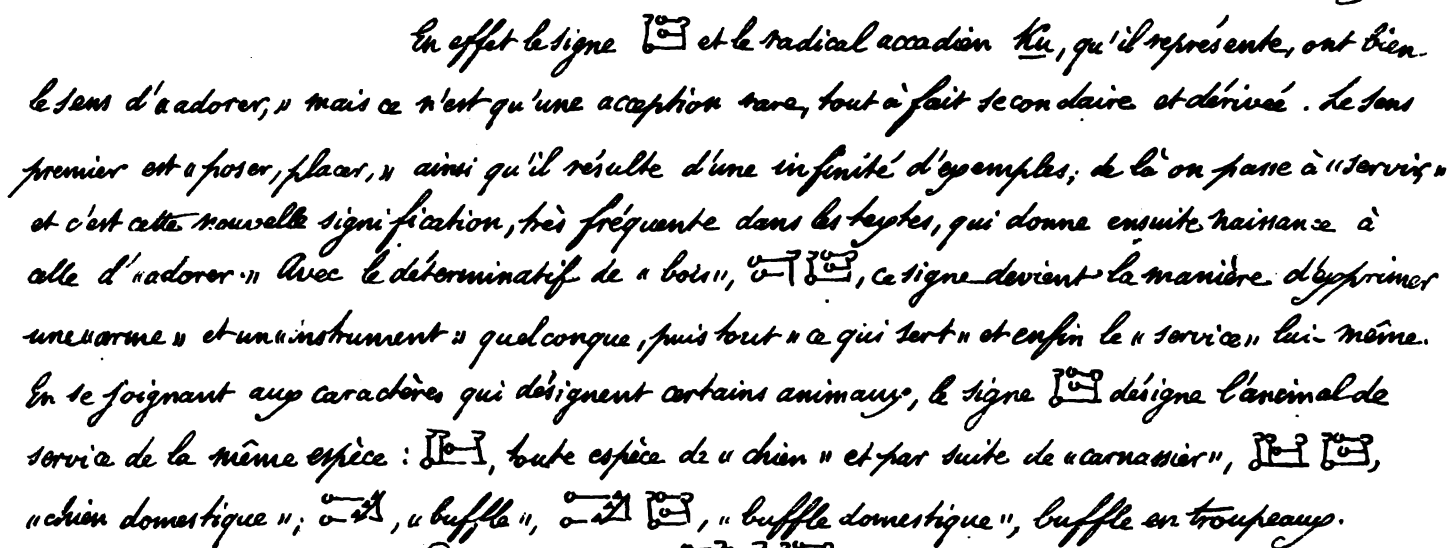 En effet le signe 𒆪 et le radical accadien Ku, qu'il représente, ont bien
le sens d'« adorer, » mais ce n'est qu'une acception rare, tout à fait secondaire et dérivée. Le sens
premier est « poser, placer, » ainsi qu'il résulte d'une infinité d'exemples; de là on passe à « servir, »
et c'est cette nouvelle signification, très fréquente dans les textes, qui donne ensuite naissance à
celle d'« adorer. » Avec le déterminatif de « bois », 𒄑 𒆪, ce signe devient la manière d'exprimer
une « arme » et un « instrument » quelconque, puis tout « ce qui sert » et enfin le « service » lui-même.
En se joignant aux caractères qui désignent certains animaux, le signe 𒆪 désigne l'animal de
service de la même espèce : 𒌨, toute espèce de « chien » et par suite de « carnassier », 𒌨 𒆪,
« chien domestique »; 𒄞, « buffle », 𒄞 𒆪, « buffle domestique », buffle en troupeaux.